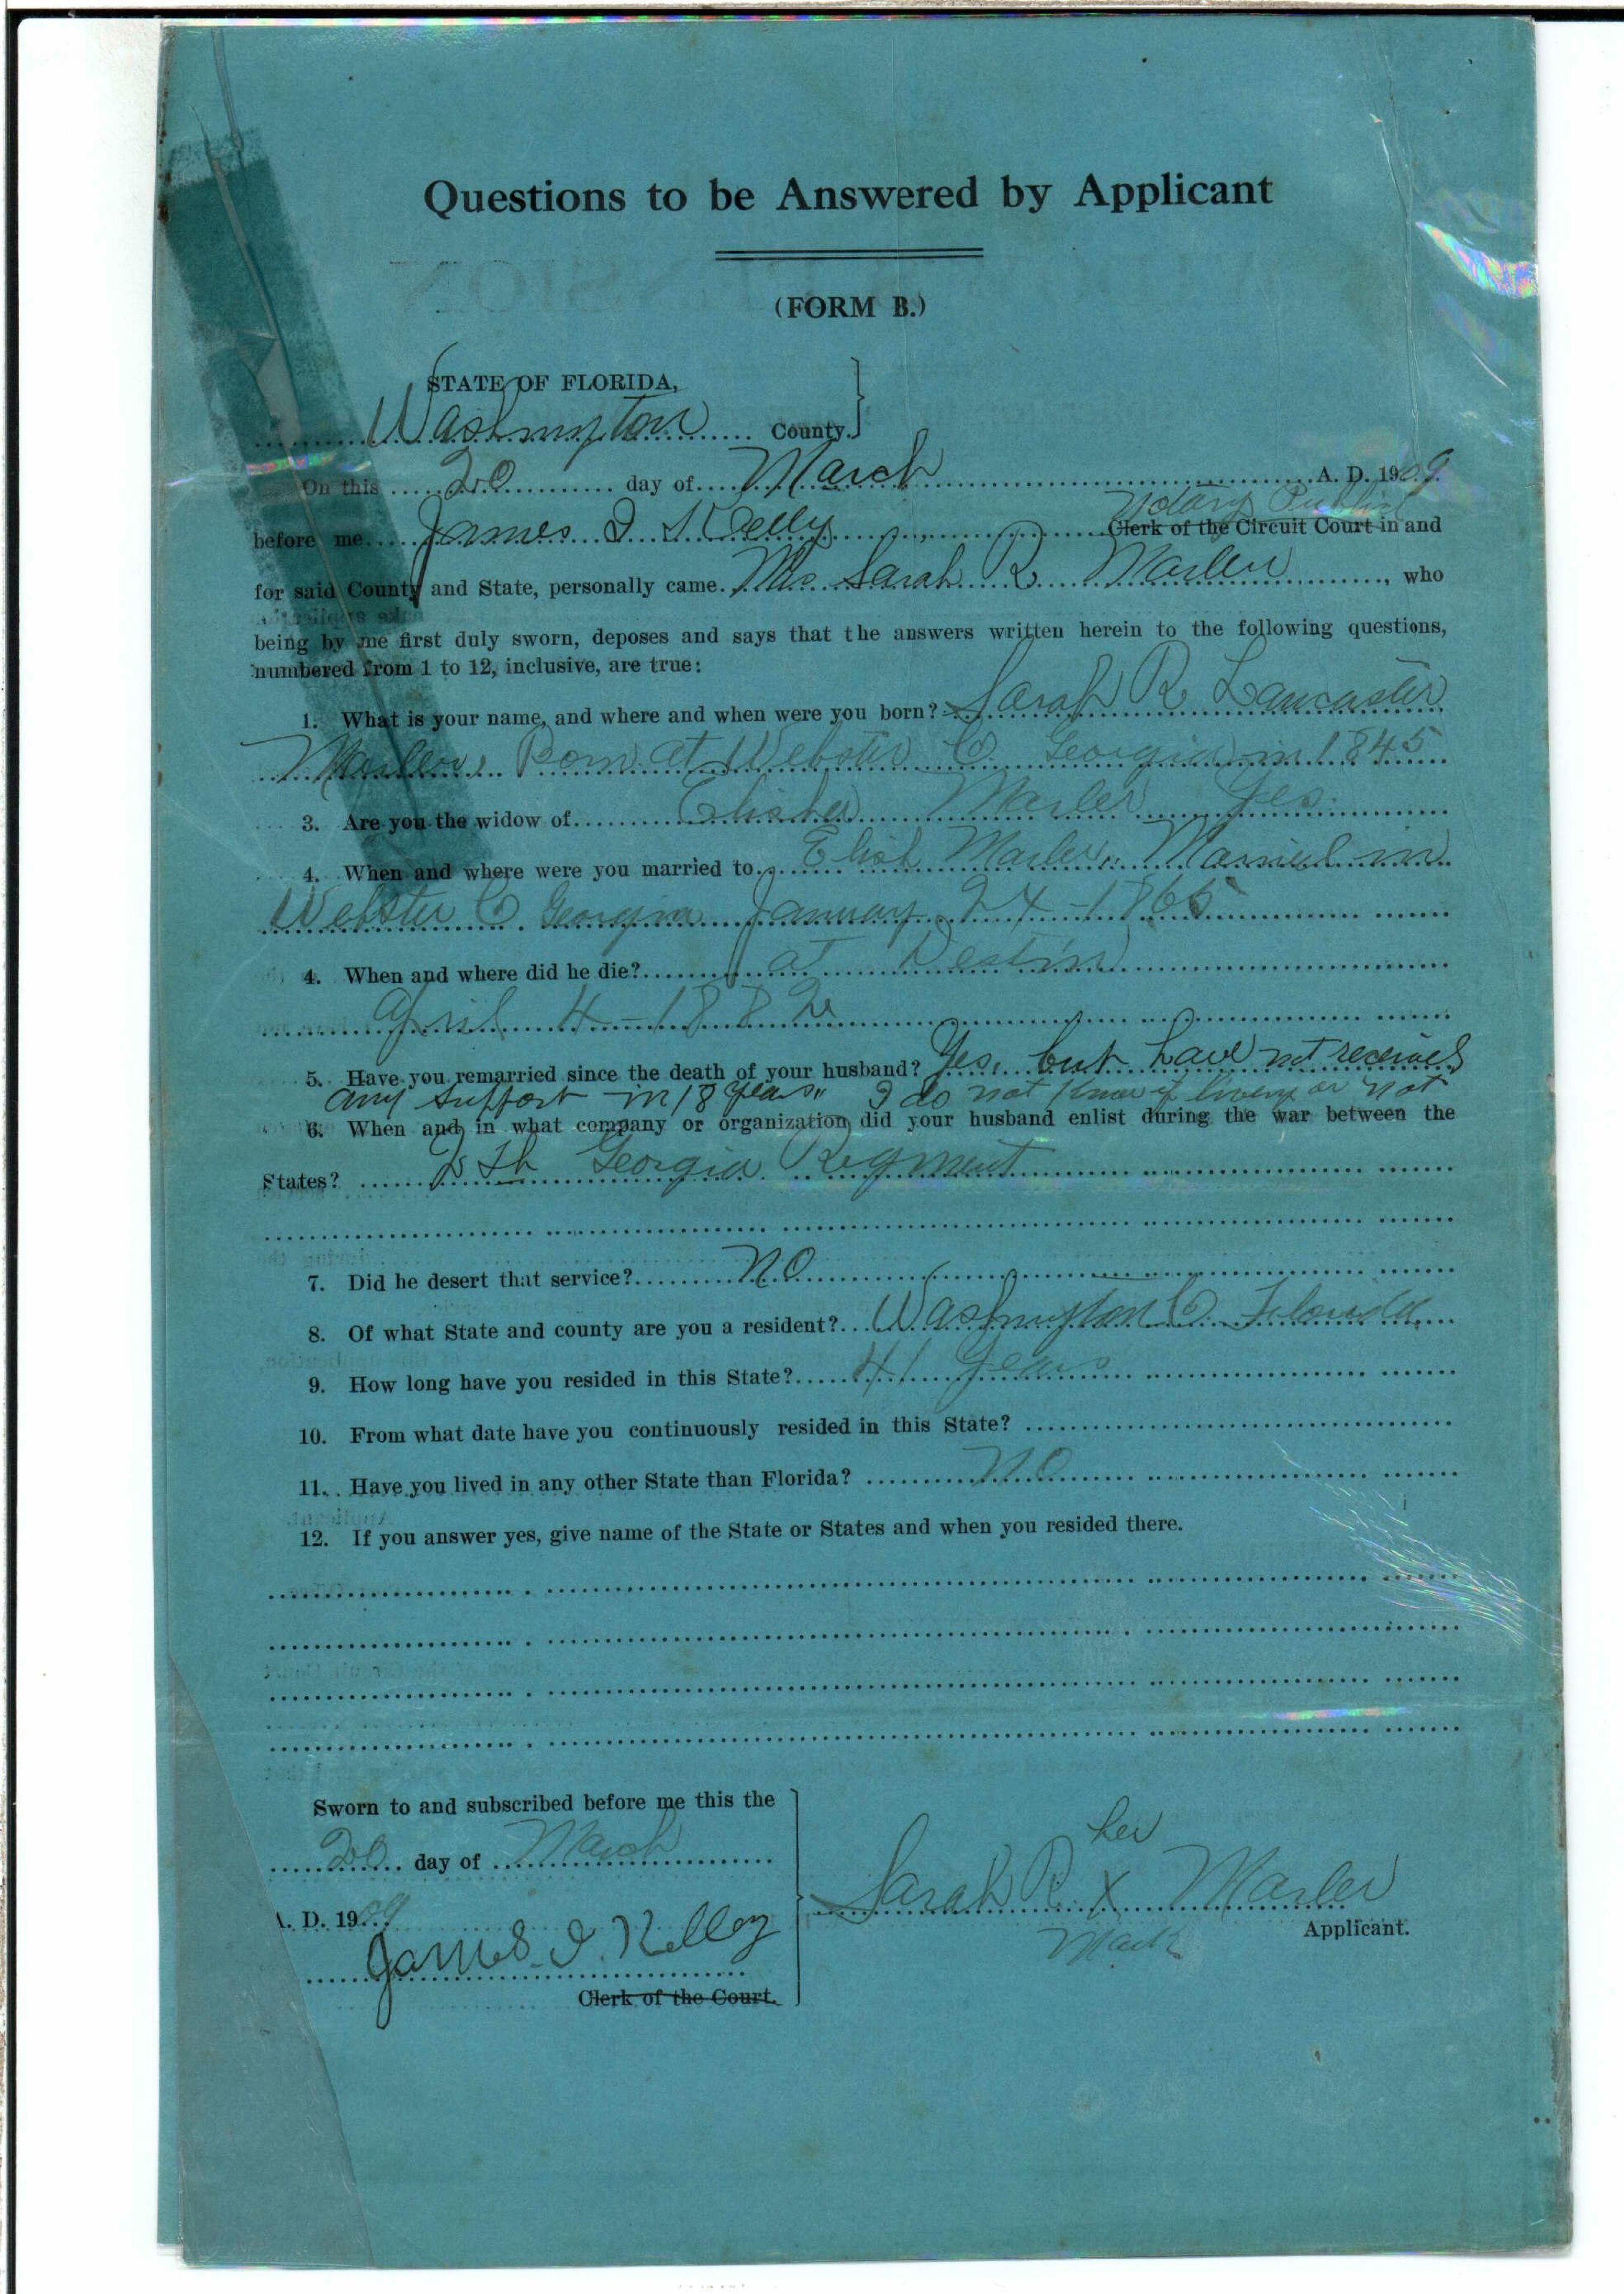 Questions to be Answered by Applicant
(FORM B.)
STATE OF FLORIDA,
Washington County.
On this 20 day of March A. D. 1909.
Notary Public
before me James I Kelly Clerk of the Circuit Court in and
for said County and State, personally came Mrs Sarah R Marler, who
being by me first duly sworn, deposes and says that the answers written herein to the following questions,
numbered from 1 to 12, inclusive, are true:
1. What is your name, and where and when were you born? Sarah R Lancaster
Marler, Born at Webster Co Georgia in 1845
3. Are you the widow of Elisha Marler Yes
4. When and where were you married to Elish Marler, Married in
Webster Co Georgia January 24 - 1865
4. When and where did he die? at Destin
April 4 - 1882
5. Have you remarried since the death of your husband? Yes, but have not received
any support in 18 years I do not know if living or not
6. When and in what company or organization did your husband enlist during the war between the
States? 5th Georgia Regment
7. Did he desert that service? NO
8. Of what State and county are you a resident? Washington Co Florida
9. How long have you resided in this State? 41 years
10. From what date have you continuously resided in this State?
11. Have you lived in any other State than Florida? NO
12. If you answer yes, give name of the State or States and when you resided there.
Sworn to and subscribed before me this the
20 day of March
A. D. 1909
James I. Kelley
Clerk of the Court.
her
Sarah R. X Marler
Mark
Applicant.